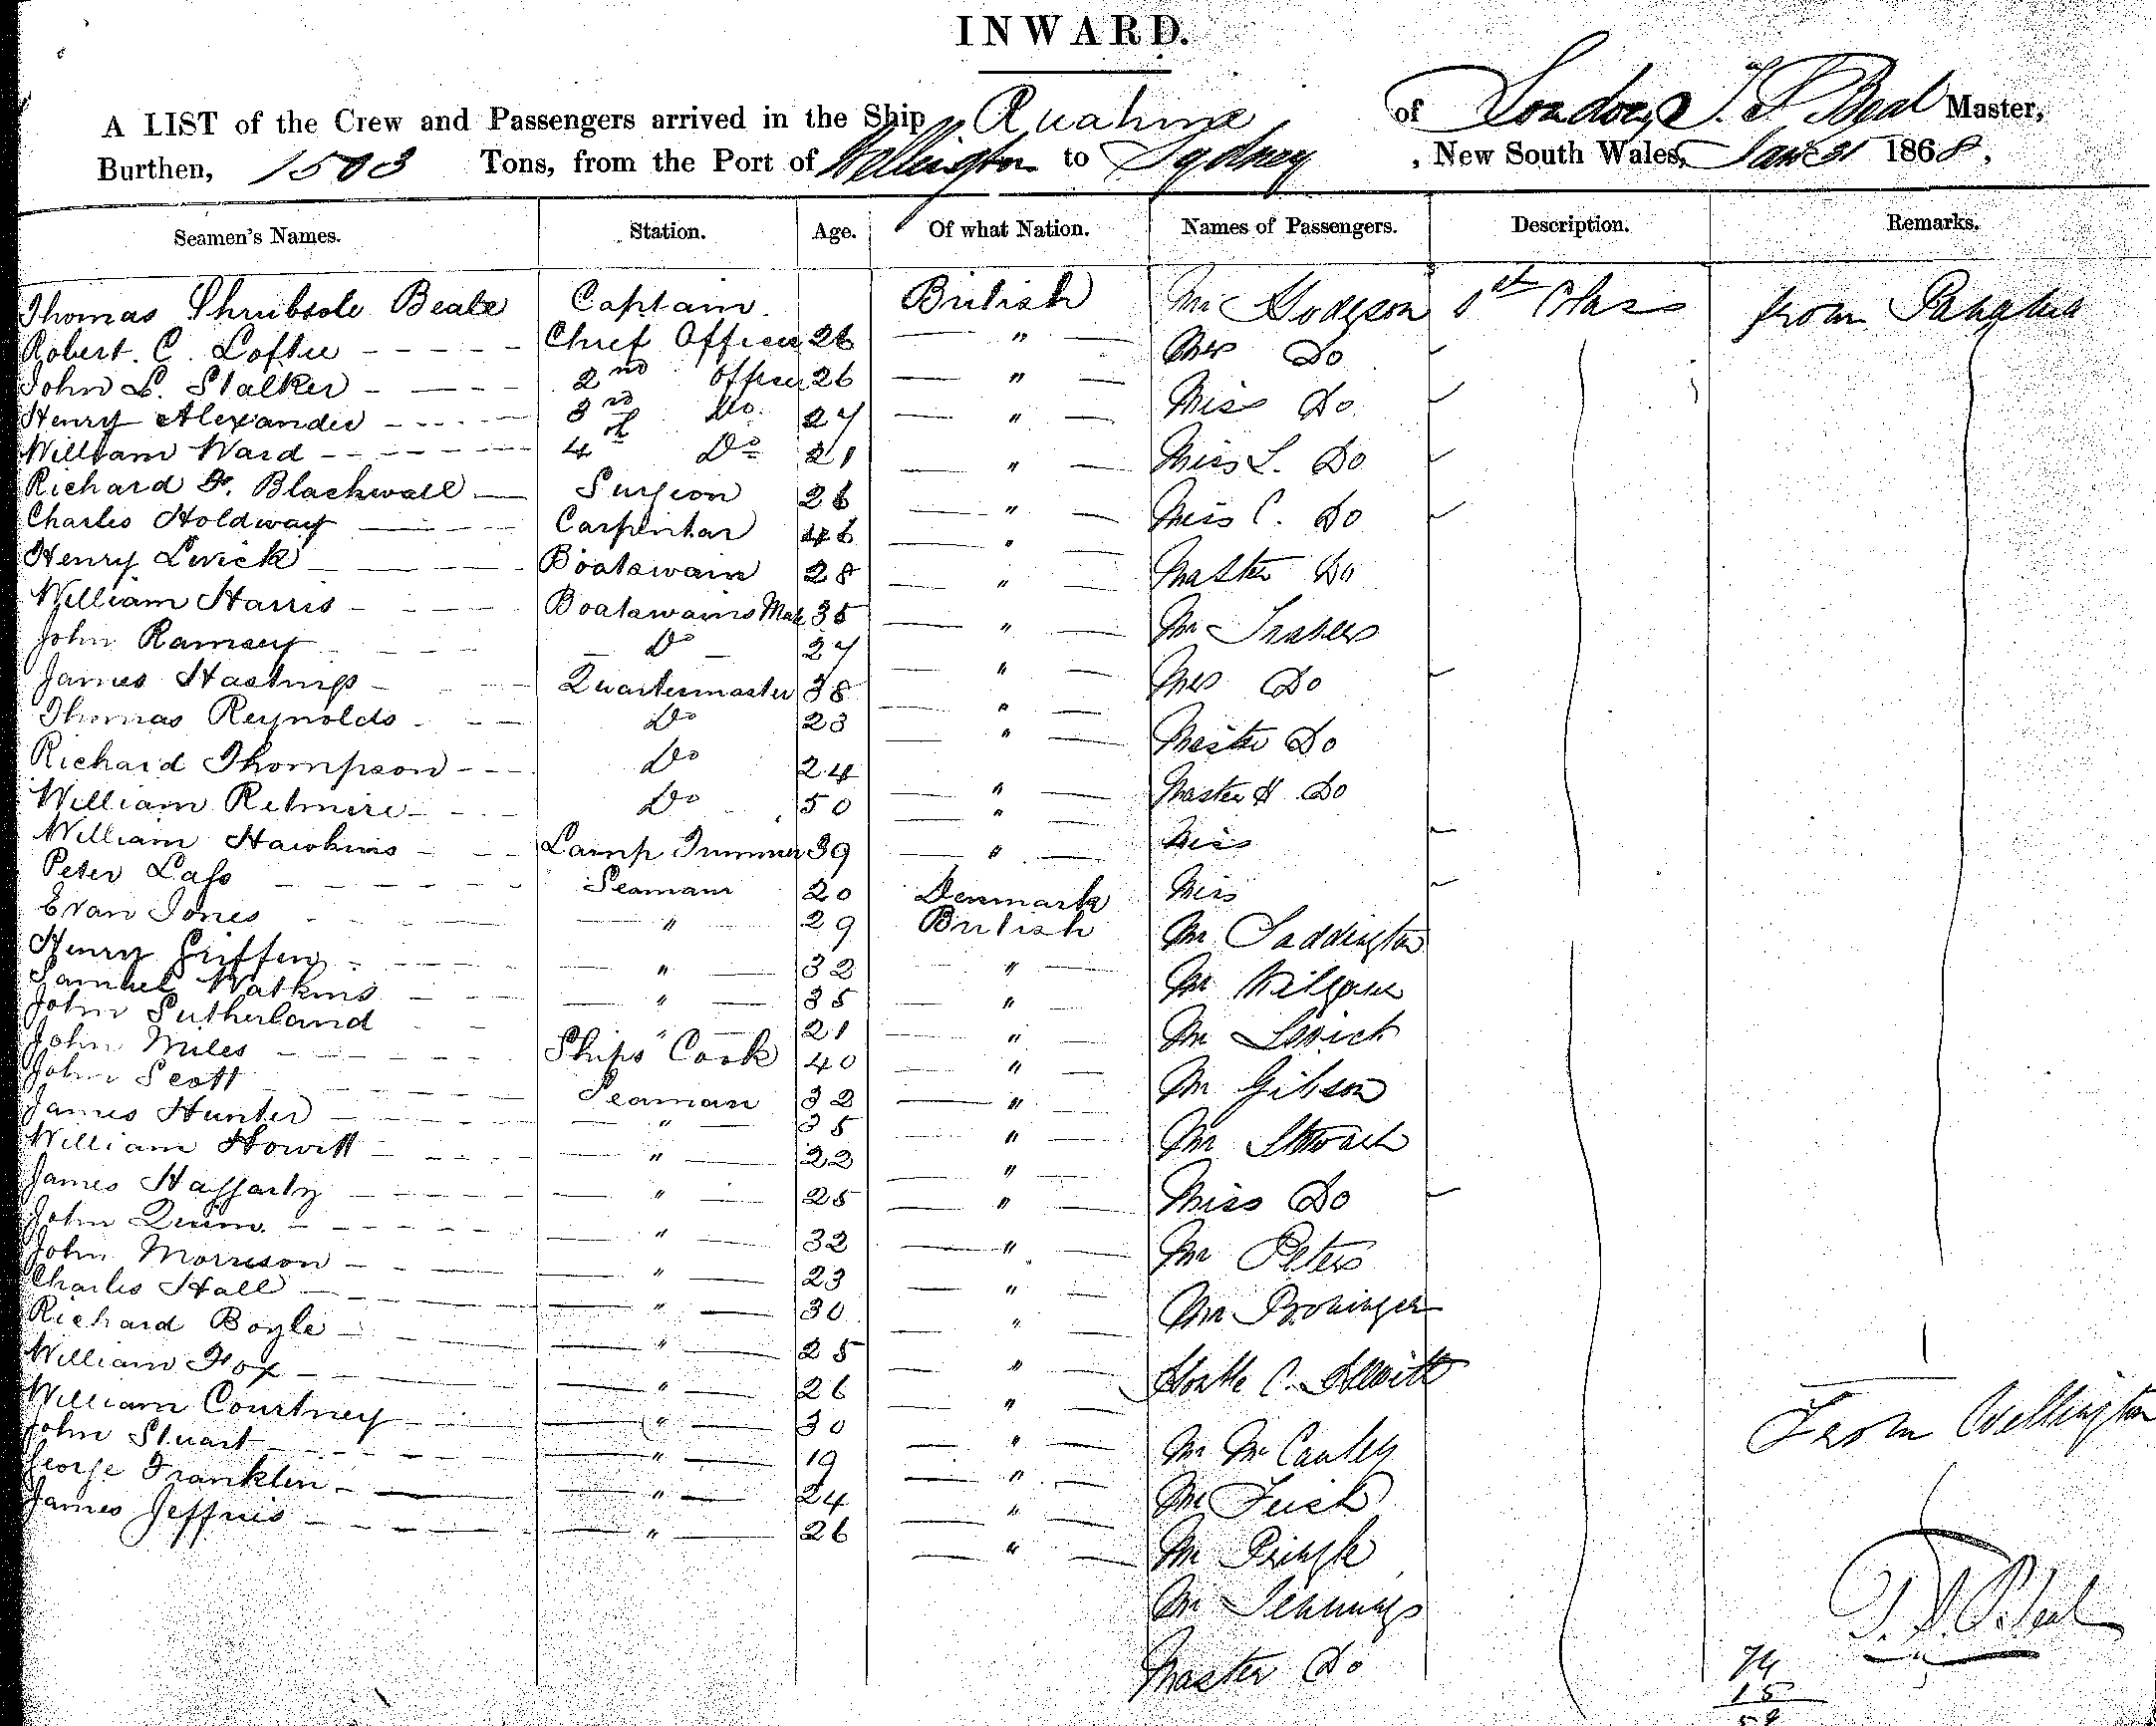 INWARD.
A LIST of the Crew and Passengers arrived in the Ship Ruahine of London, T. S. Beal Master,
Burthen, 1503 Tons, from the Port of Wellington to Sydney, New South Wales, Jan 31 1868,
Seamen's Names. Station. Age. Of what Nation. Names of Passengers. Description. Remarks.
Thomas Shrubsole Beale Captain. British Mr Hodgson 1st Class from Panama
Robert. C. Loftie Chief Officer 26 " Mrs Do
John L. Stalker 2nd Officer 26 " Miss Do
Henry Alexander 3rd Do. 27 " Miss L. Do
William Ward 4th Do 21 " Miss C. Do
Richard Blackwall Surgeon 26 " Master Do
Charles Holdway Carpenter 46 " Mr
Henry Lwick Boatswain 28 " Mrs Do
William Harris Boatswains Mate 35 " Master Do
John Ramsey Do 27 " Master H Do
James Hastings Quartermaster 38 " Miss
Thomas Reynolds Do 23 " Miss
Richard Thompson Do 24 " Mr Saddington
William Retmire Do 50 " Mr Kilgour
William Hawkins Lamp Trimmer 39 " Mr
Peter Lass Seaman 20 Denmark Mr Gibson
Evan Jones " 29 British Mr Stewart
Henry Griffen " 32 " Miss Do
Samuel Watkins " 35 " Mr Peters
John Sutherland " 21 " Mr
John Miles Ships Cook 40 "
John Scott Seaman 32 " Mr McCauley From Wellington
James Hunter " 35 " Mr
William Howitt " 22 " Mr Pringle
James Haggarty " 25 " Mr Jennings
John Quinn " 32 " Master Do
John Morrison " 23 "
Charles Hall " 30 "
Richard Boyle " 25 "
William Fox " 26 "
William Courtney " 30 "
John Stuart " 19 "
George Franklin " 24 "
James Jeffries " 26 "
T. S. Beal
74
15
59